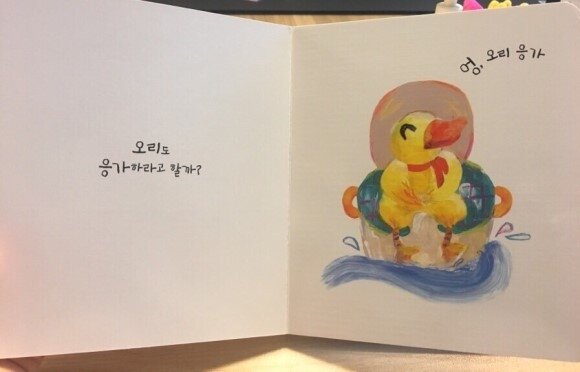 오리도
응가하라고 할까?
엉, 오리 응가